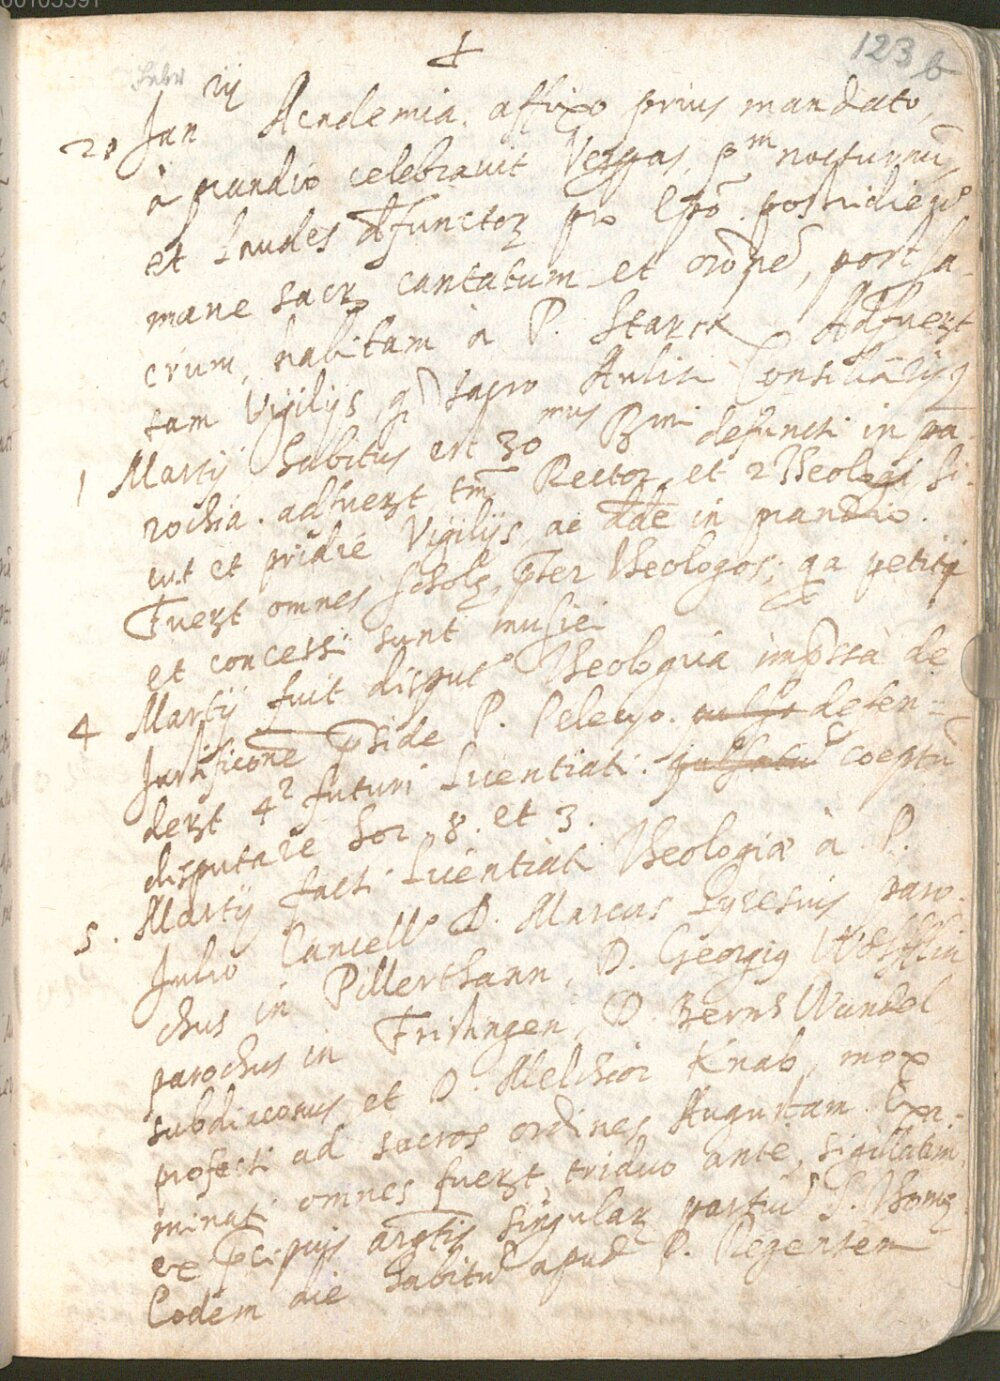 00103391
123 b
Febr
†
21 Jan rij Academia, affixo prius mandato,
à prandio celebravit Vesperas, pm nocturnū
et Laudes dfunctoꝝ pro Epō. postridie
mane sacꝝ cantatum et orōne, post sa-
crum, habitam à P. Starck. Adfuerꝫt
tam Vigilijs, qͣ sacro Aulici Consiliarij
1 Martij habitus est 30mus Rmi defuncti in pa-
rochia. adfuerꝫt tm̄ Rector et 2 Theologi si-
cut et pridie Vigilijs, ac dde in prandio.
Fuerꝫt omnes scholꝫ, p̄ter Theologos; qa petiti
et concessi sunt musici
4 Martij fuit disput° Theologica imp̄ssa de
Justificōne p̄side P. Peleuo. defen-
derꝫt 4r futuri Licentiati. coeptū
disputare hor. 8. et 3.
5. Martij facti Licentiati Theologiæ à P.
Julio Cancello D. Marcus Lyresius paro-
chus in Pillerthann, D. Georgiꝰ
parochus in Frisingen, D. Bernh Wankel
subdiaconus, et D. Melchior Knab, mox
profecti ad sacros ordines Augustam. Exa-
minati omnes fuerꝫt, triduo ante, sigillatim
ex p̄cipuis artis singulaꝝ partiū S. Thomꝫ
Eodem die habitū apud P. Regentem